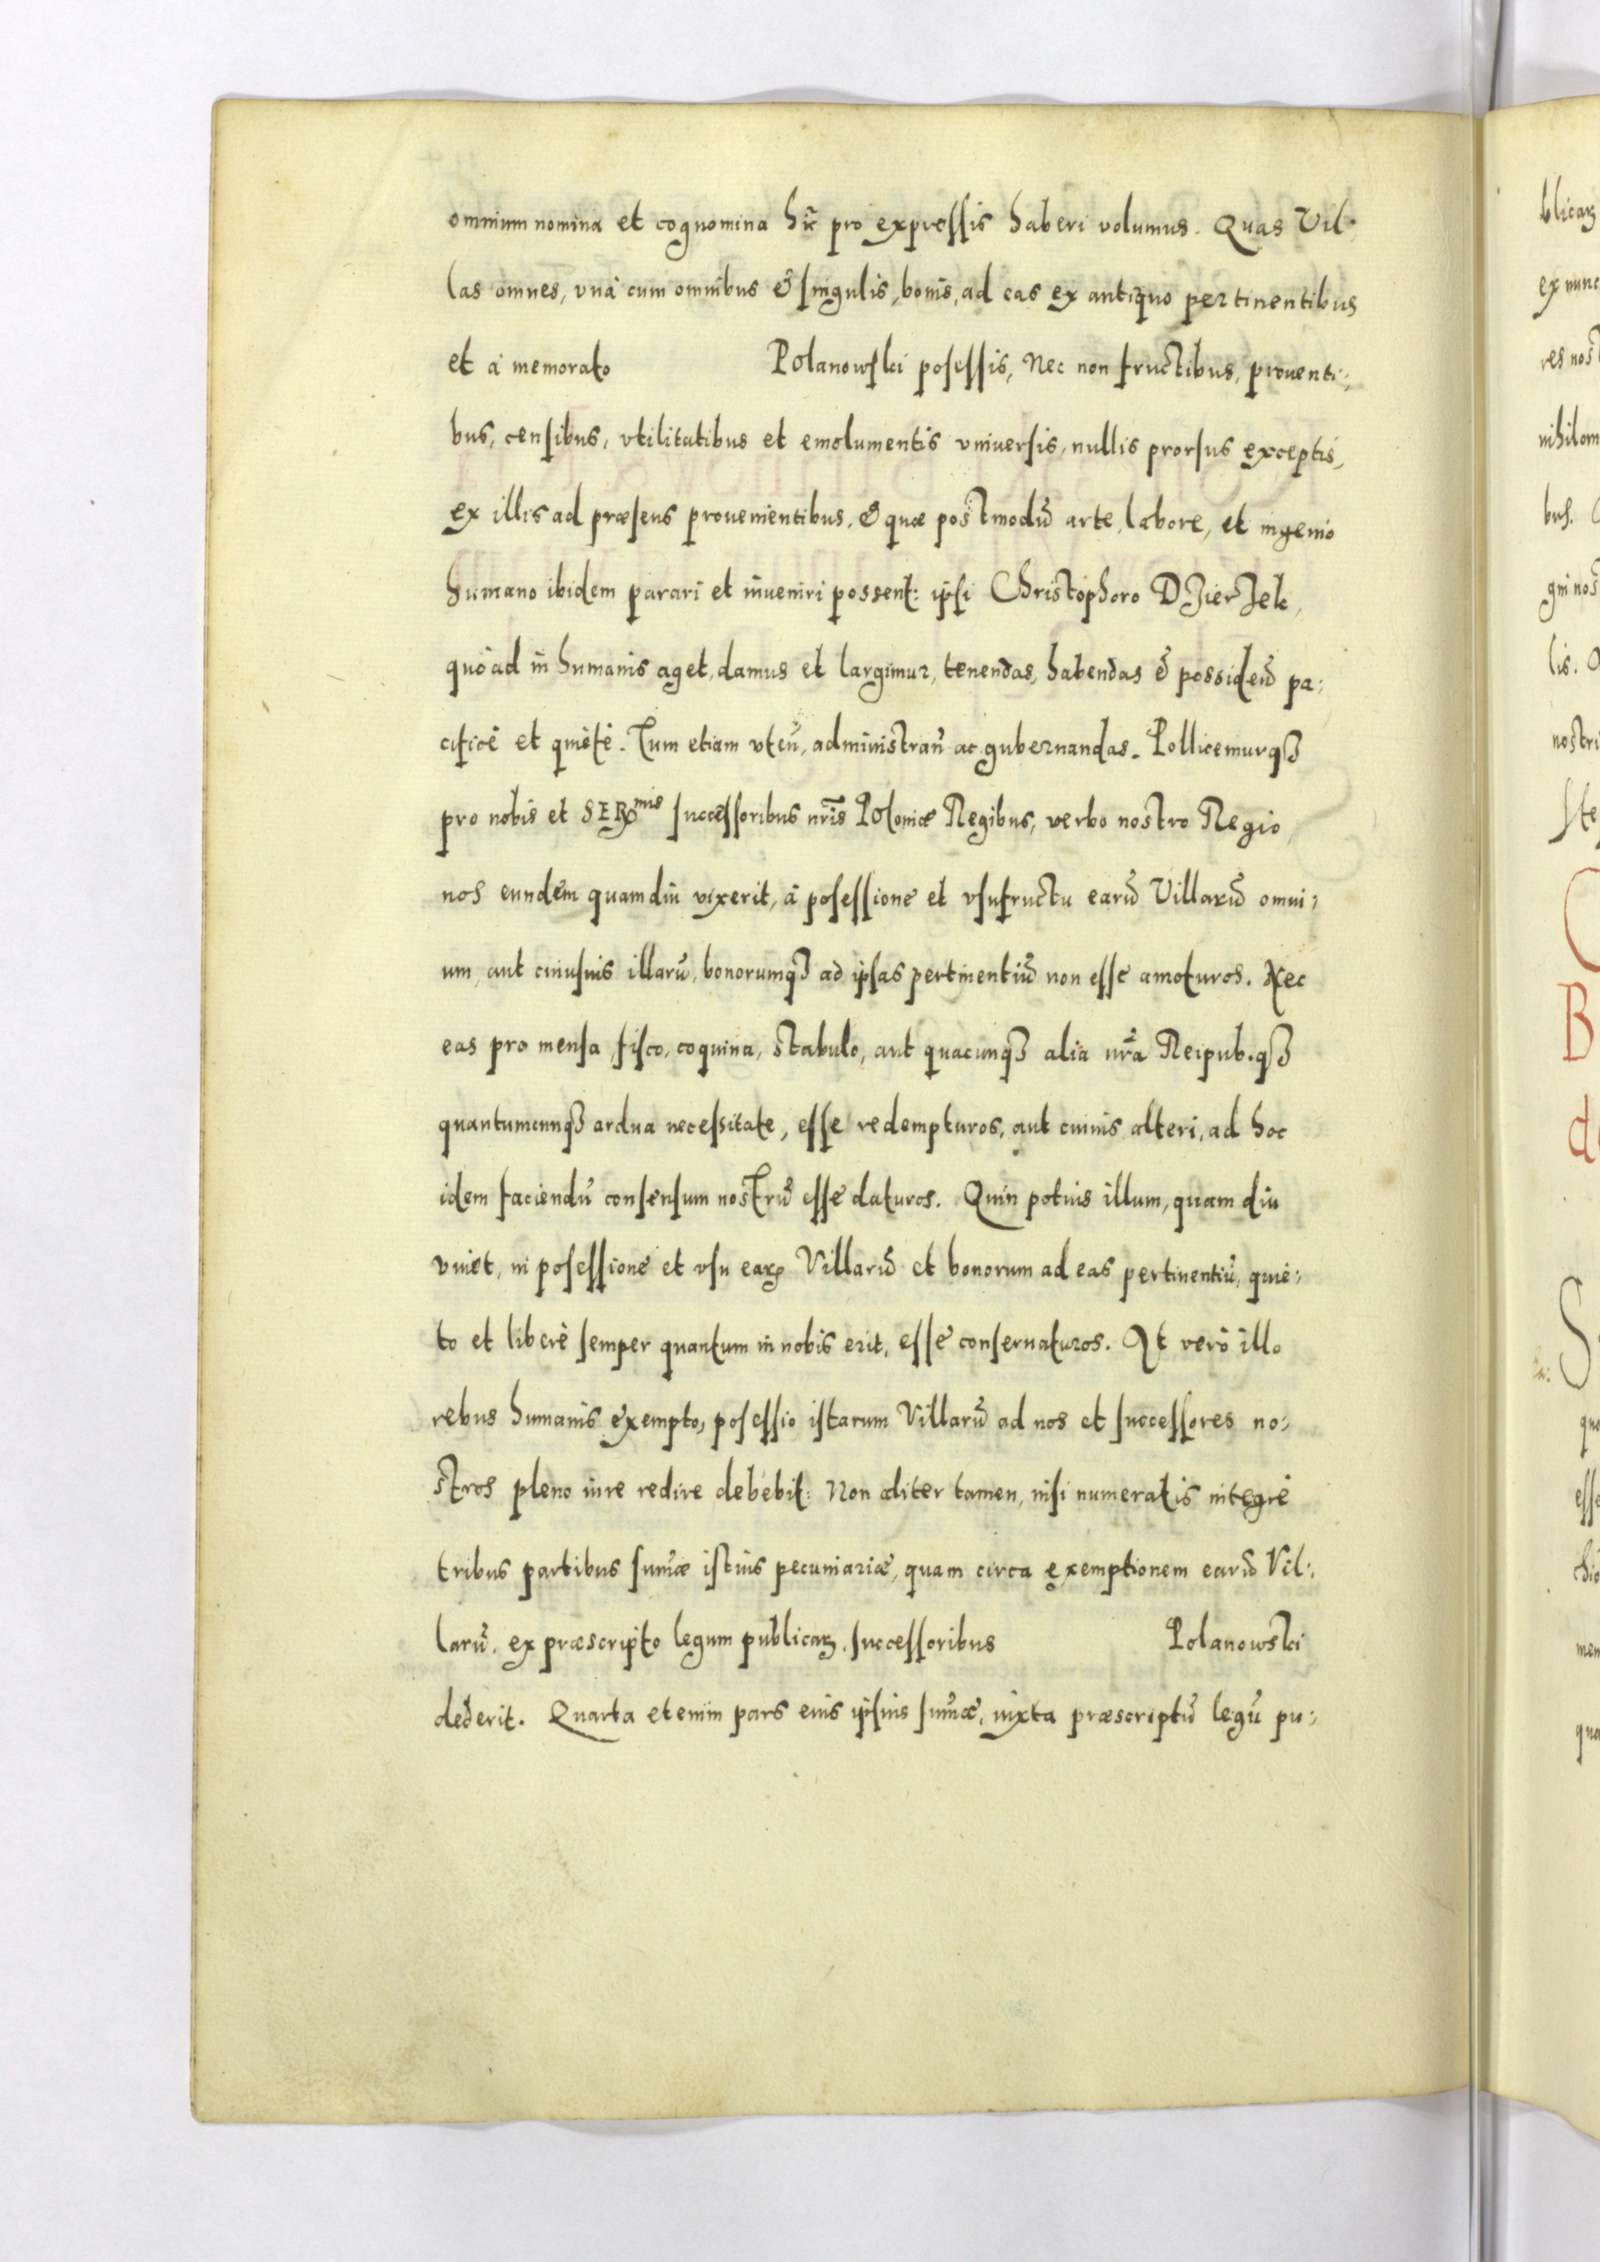 omnium nomina et cognomina hic̃ pro expressis haberi volumus. Quas Vil:
las omnes, vnà cum omnibus & singulis, bonis, ad eas ex antiquo pertinentibus
et à memorato Polanowski posessis, Nec non fructibus, prouenti:,
bus, censibus, vtilitatibus et emolumentis vniuersis, nullis prorsus exceptis,
ex illis ad præsens prouenientibus, & quæ postmodũ arte, labore, et ingenio
humano ibidem parari et inueniri possent: ipsi Christophoro Dzierzek,
quo ad in humanis aget, damus et largimur, tenendas, habendas & possideñ pa:
cificè et quietè. Tum etiam vteñ, administrañ ac gubernandas. Pollicemurqꝫ
pro nobis et SERmis successoribus nr̃is Poloniæ Regibus, verbo nostro Regio,
nos eundem quamdiu vixerit, à posessione et vsufructu earũ Villarũ omni:
um, aut cuiusuis illarũ, bonorumqꝫ ad ipsas pertinentiũ non esse amoturos. Nec
eas pro mensa, fisco, coquina, stabulo, aut quacunqꝫ alia nr̃a Reipub.qꝫ
quantumcunqꝫ ardua necessitate, esse redempturos, aut cuiuis alteri, ad hoc
idem faciendũ consensum nostrũ esse daturos. Quin potius illum, quam diu
viuet, in posessione et vsu earꝝ Villarũ et bonorum ad eas pertinentiũ, quie:
to et liberè semper quantum in nobis erit, esse conseruaturos. At verò illo
rebus humanis exempto, posessio istarum Villarũ ad nos et successores no:
stros pleno iure redire debebit: Non aliter tamen, nisi numeratis integrè
tribus partibus sum̃æ istius pecuniariæ, quam circa exemptionem earũ Vil:
larũ, ex præscripto legum publicaꝝ, successoribus Polanowski
dederit. Quarta etenim pars eius ipsius sum̃æ, iuxta præscriptũ legũ pu: